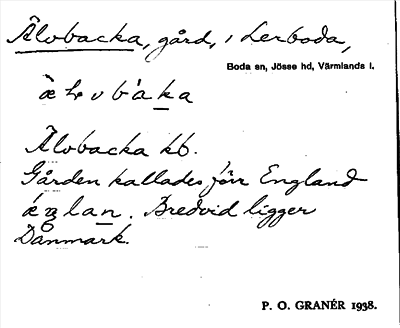 Älvbacka, gård, i Lerboda,
Boda sn, Jösse hd, Värmlands l.
Älvbacka kb.
Gården kallades förr England
áŋlan. Bredvid ligger
Danmark.
P. O. GRANÉR 1938.